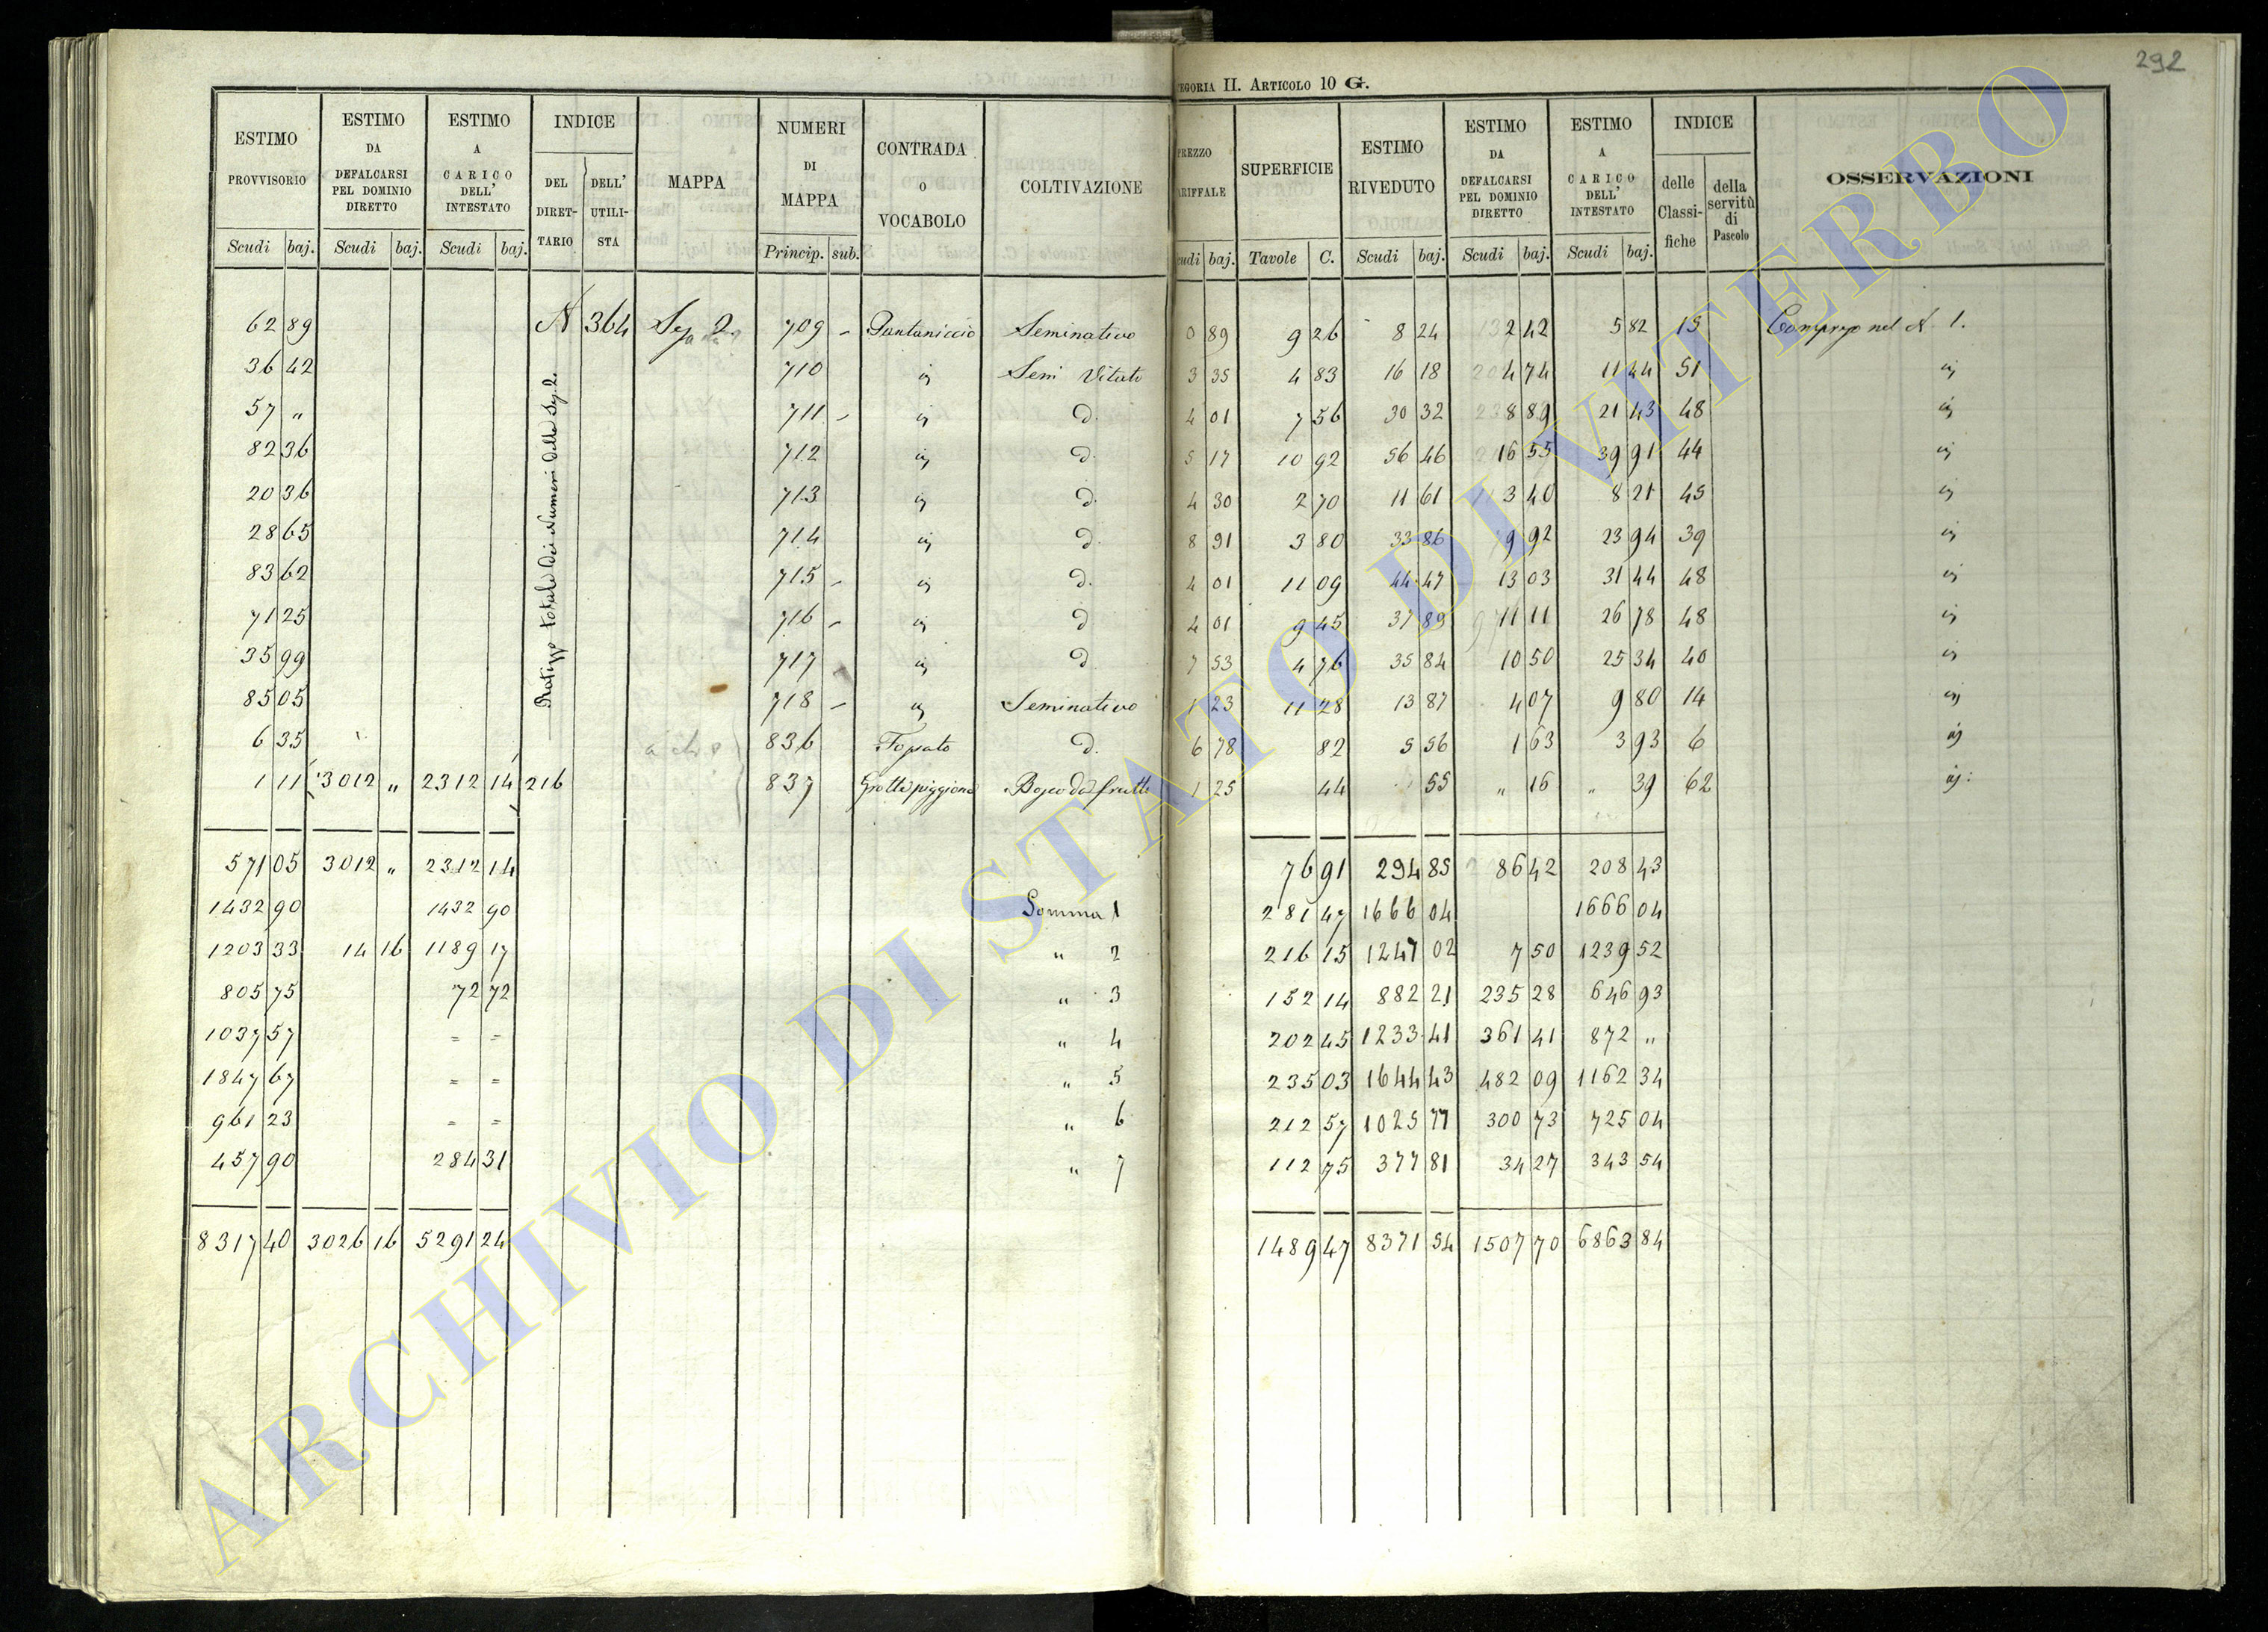 292
EGORIA II. ARTICOLO 10 G.
ESTIMO PROVVISORIO Scudi baj.
ESTIMO DA DEFALCARSI PEL DOMINIO DIRETTO Scudi baj.
ESTIMO A CARICO DELL' INTESTATO Scudi baj.
INDICE DEL DIRETTARIO DELL' UTILISTA
MAPPA
NUMERI DI MAPPA Princip. sub.
CONTRADA O VOCABOLO
COLTIVAZIONE
PREZZO ARIFFALE udi baj.
SUPERFICIE Tavole C.
ESTIMO RIVEDUTO Scudi baj.
ESTIMO DA DEFALCARSI PEL DOMINIO DIRETTO Scudi baj.
ESTIMO A CARICO DELL' INTESTATO Scudi baj.
INDICE delle Classifiche della servitù di Pascolo
OSSERVAZIONI
62 89 A 364 Sez. 2a 709 - Pantaniccio Seminativo 0 89 9 26 8 24 2 42 5 82 15 Compreso nel N. 1.
36 42 710 id Semi Vitato 3 35 4 83 16 18 4 74 11 44 51 id
57 " 711 - id d. 4 01 7 56 30 32 8 89 21 43 48 id
82 36 712 id d. 5 17 10 92 56 46 16 55 39 91 44 id
20 36 713 id d. 4 30 2 70 11 61 3 40 8 21 45 id
28 65 714 id d. 8 91 3 80 33 86 9 92 23 94 39 id
83 62 715 - id d. 4 01 11 09 44 47 13 03 31 44 48 id
71 25 716 - id d 4 01 9 45 37 89 11 11 26 78 48 id
35 99 717 id d. 7 53 4 76 35 84 10 50 25 34 40 id
85 05 718 - id Seminativo 1 23 11 28 13 87 4 07 9 80 14 id
6 35 836 Topato d. 6 78 82 5 56 1 63 3 93 6 id
1 11 3012 " 2312 14 216 837 Grotta piggiona Bosco da frutto 1 25 44 55 " 16 " 39 62 id:
totale dei Numeri della Sez. 2.
571 05 3012 " 2312 14 76 91 294 85 86 42 208 43
1432 90 1432 90 Somma 1 281 47 1666 04 1666 04
1203 33 14 16 1189 17 " 2 216 15 1247 02 7 50 1239 52
805 75 72 72 " 3 152 14 882 21 235 28 646 93
1037 57 = = " 4 202 45 1233 41 361 41 872 "
1847 67 = = " 5 235 03 1644 43 482 09 1162 34
961 23 = = " 6 212 57 1025 77 300 73 725 04
457 90 284 31 " 7 112 75 377 81 34 27 343 54
8317 40 3026 16 5291 24 1489 47 8371 54 1507 70 6863 84
ARCHIVIO DI STATO DI VITERBO